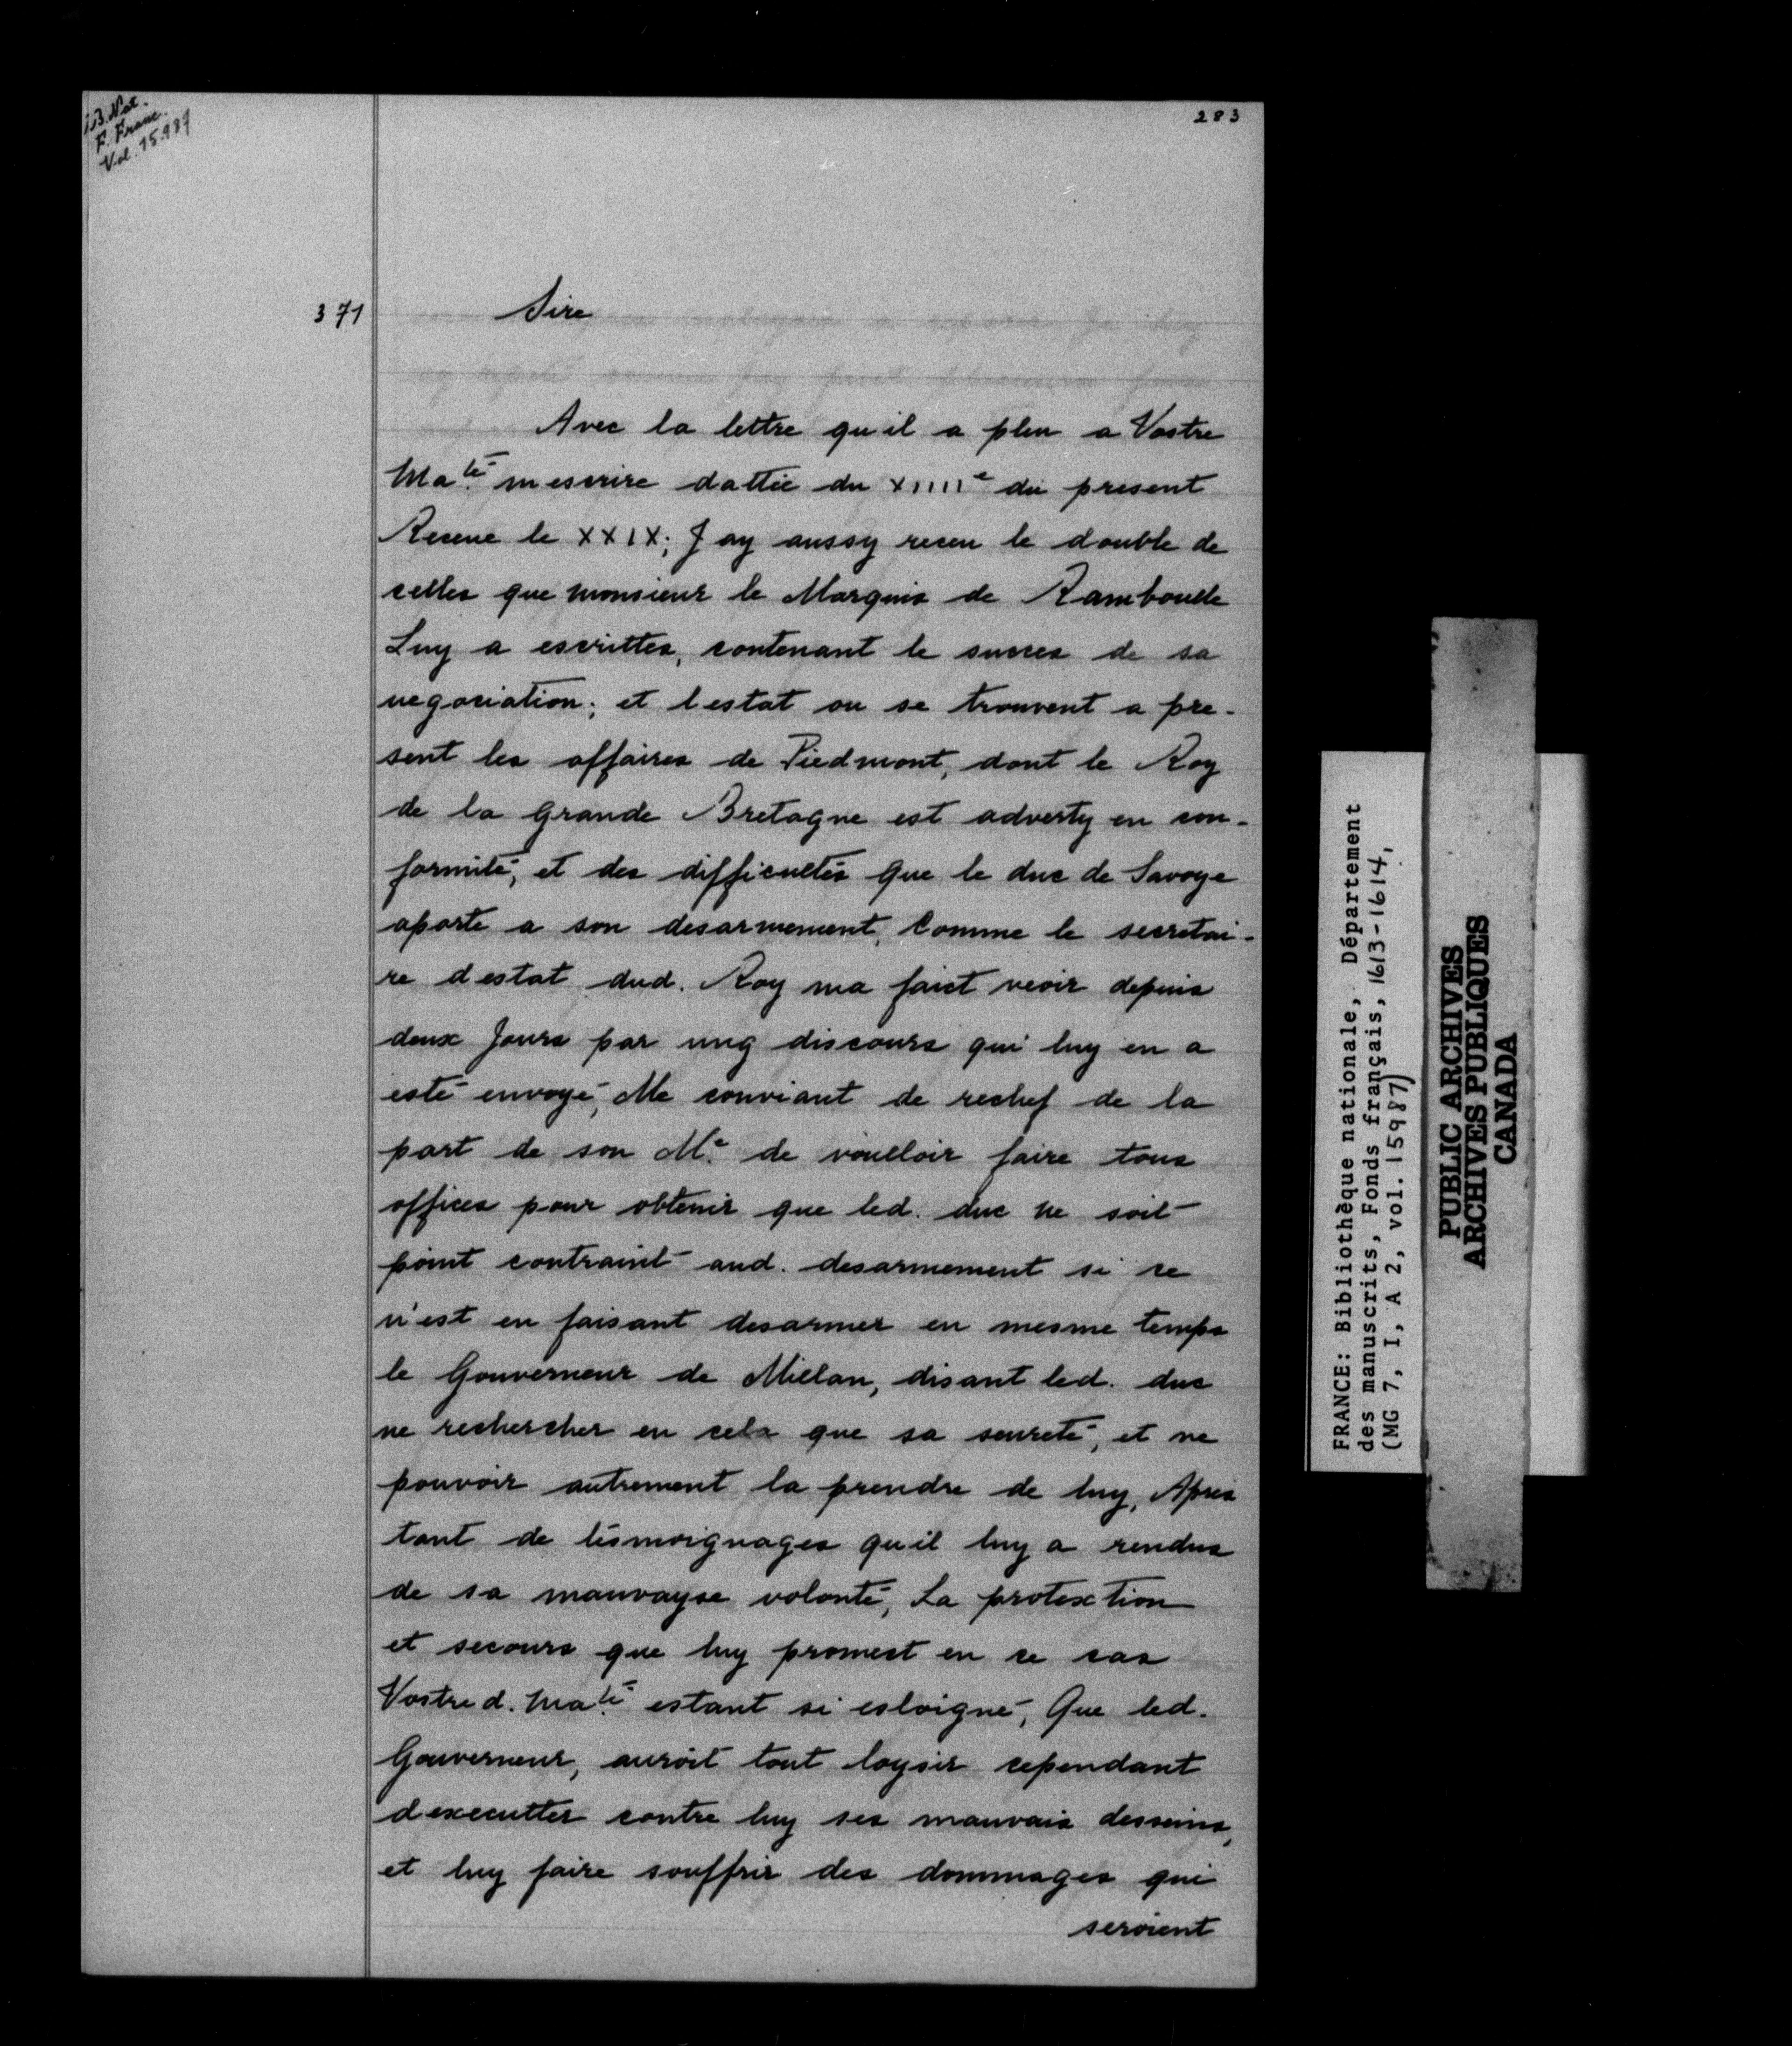 B. Nat.
F. Franc.
Vol. 15.987
283
371
Sire
Avec la lettre qu'il a pleu a Vostre
Ma.té mescrire dattée du XIIIIe du present
Receue le XXIX; Jay aussy receu le double de
celles que monsieur le Marquis de Rambouille
Luy a escrittes, contenant le succes de sa
negociation; et lestat ou se trouvent a pre-
sent les affaires de Piedmont, dont le Roy
de la Grande Bretagne est adverty en con-
formité, et des difficultés que le duc de Savoye
aporte a son desarmement, Comme le secretai-
re destat dud. Roy ma faict veoir depuis
deux Jours par ung discours qui luy en a
esté envoyé, Me conviant de rechef de la
part de son M.e de voulloir faire tous
offices pour obtenir que led. duc ne soit
point contraint aud. desarmement si ce
n'est en faisant desarmer en mesme temps
le Gouverneur de Millan, disant led. duc
ne rechercher en cela que sa seureté, et ne
pouvoir autrement la prendre de luy, Apres
tant de tésmoignages quil luy a rendus
de sa mauvayse volonté, La protextion
et secours que luy promect en ce cas
Vostre d. Ma.té estant si esloigné, Que led.
Gouverneur, auroit tout loysir cependant
dexecutter contre luy ses mauvais desseins,
et luy faire souffrir des dommages qui
seroient
FRANCE: Bibliothèque nationale, Département
des manuscrits, Fonds français, 1613-1614,
(MG 7, I, A 2, vol. 15987)
PUBLIC ARCHIVES
ARCHIVES PUBLIQUES
CANADA